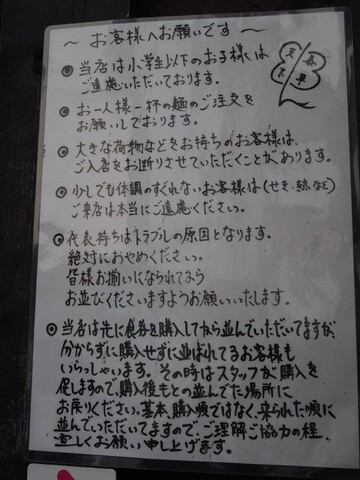 〜お客様へお願いです〜
◉当店は小学生以下のお子様は
ご遠慮いただいております。
◉お一人様一杯の麺のご注文を
お願いしております。
◉大きな荷物などをお持ちのお客様は、
ご入店をお断りさせていただくことがあります。
◉少しでも体調のすぐれないお客様は(せき・熱など)
ご来店は本当にご遠慮ください。
◉代表待ちはトラブルの原因となります。
絶対におやめください。
皆様お揃いになられてから
お並びくださいますようお願いいたします。
◉当店は先に食券を購入してから並んでいただいてますが、
分からずに購入せずに並ばれてるお客様も
いらっしゃいます。その時はスタッフが購入を
促しますので、購入後もとの並んでた場所に
お戻りください。基本、購入順ではなく、来られた順に
並んでいただいてますので、ご理解ご協力の程、
宜しくお願い申し上げます。